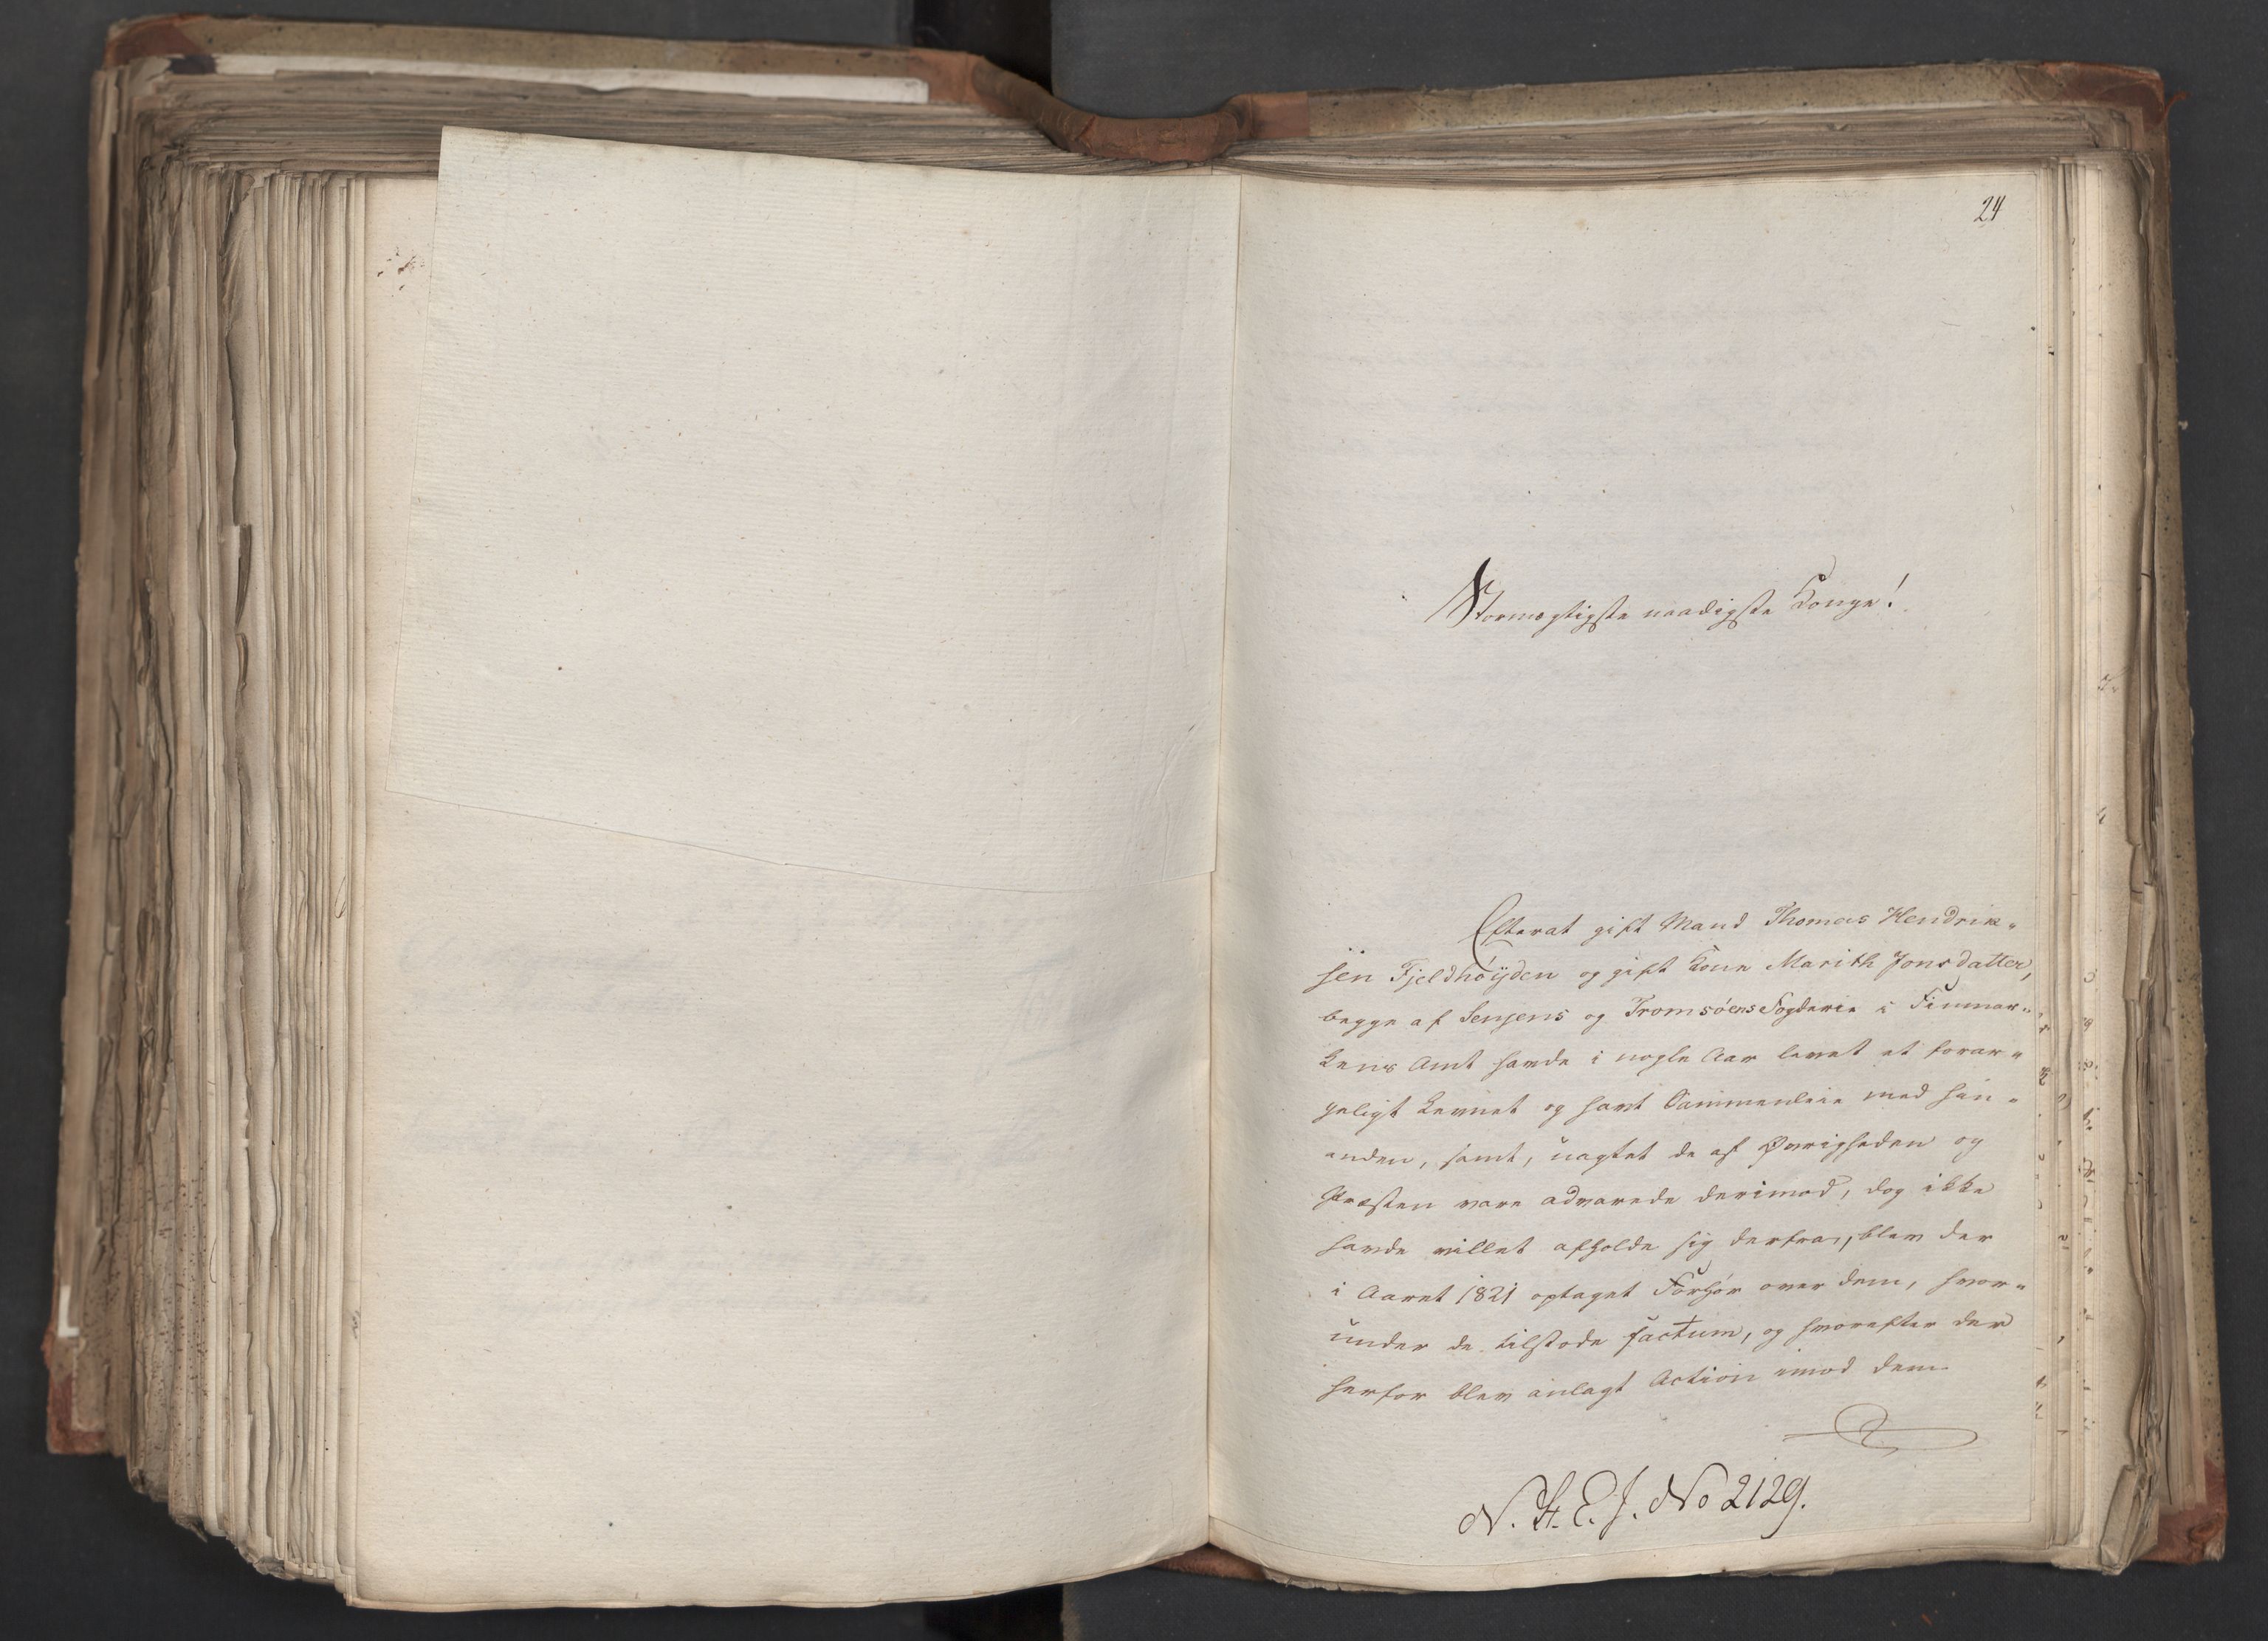 24
Stormægtigste naadigste Konge!
Efterat gift Mand Thomas Hendrik„
sen Fjeldhöyden og gift Kone Marith Jonsdatter,
begge af Senjens og Tromsöens Fogderie i Finmar„
kens Amt havde i nogle Aar levet et forar„
geligt Levnet og havt Sammenleie med hin„
anden, samt, uagtet de af Øvrigheden og
Præsten vare advarede derimod, dog ikke
havde villet afholde sig derfra, blev der
i Aaret 1821 optaget Forhör over dem, hvor„
under de tilstode factum, og hvorefter der
herfor blev anlagt Action imod dem
N. St. E. J. No 2129.